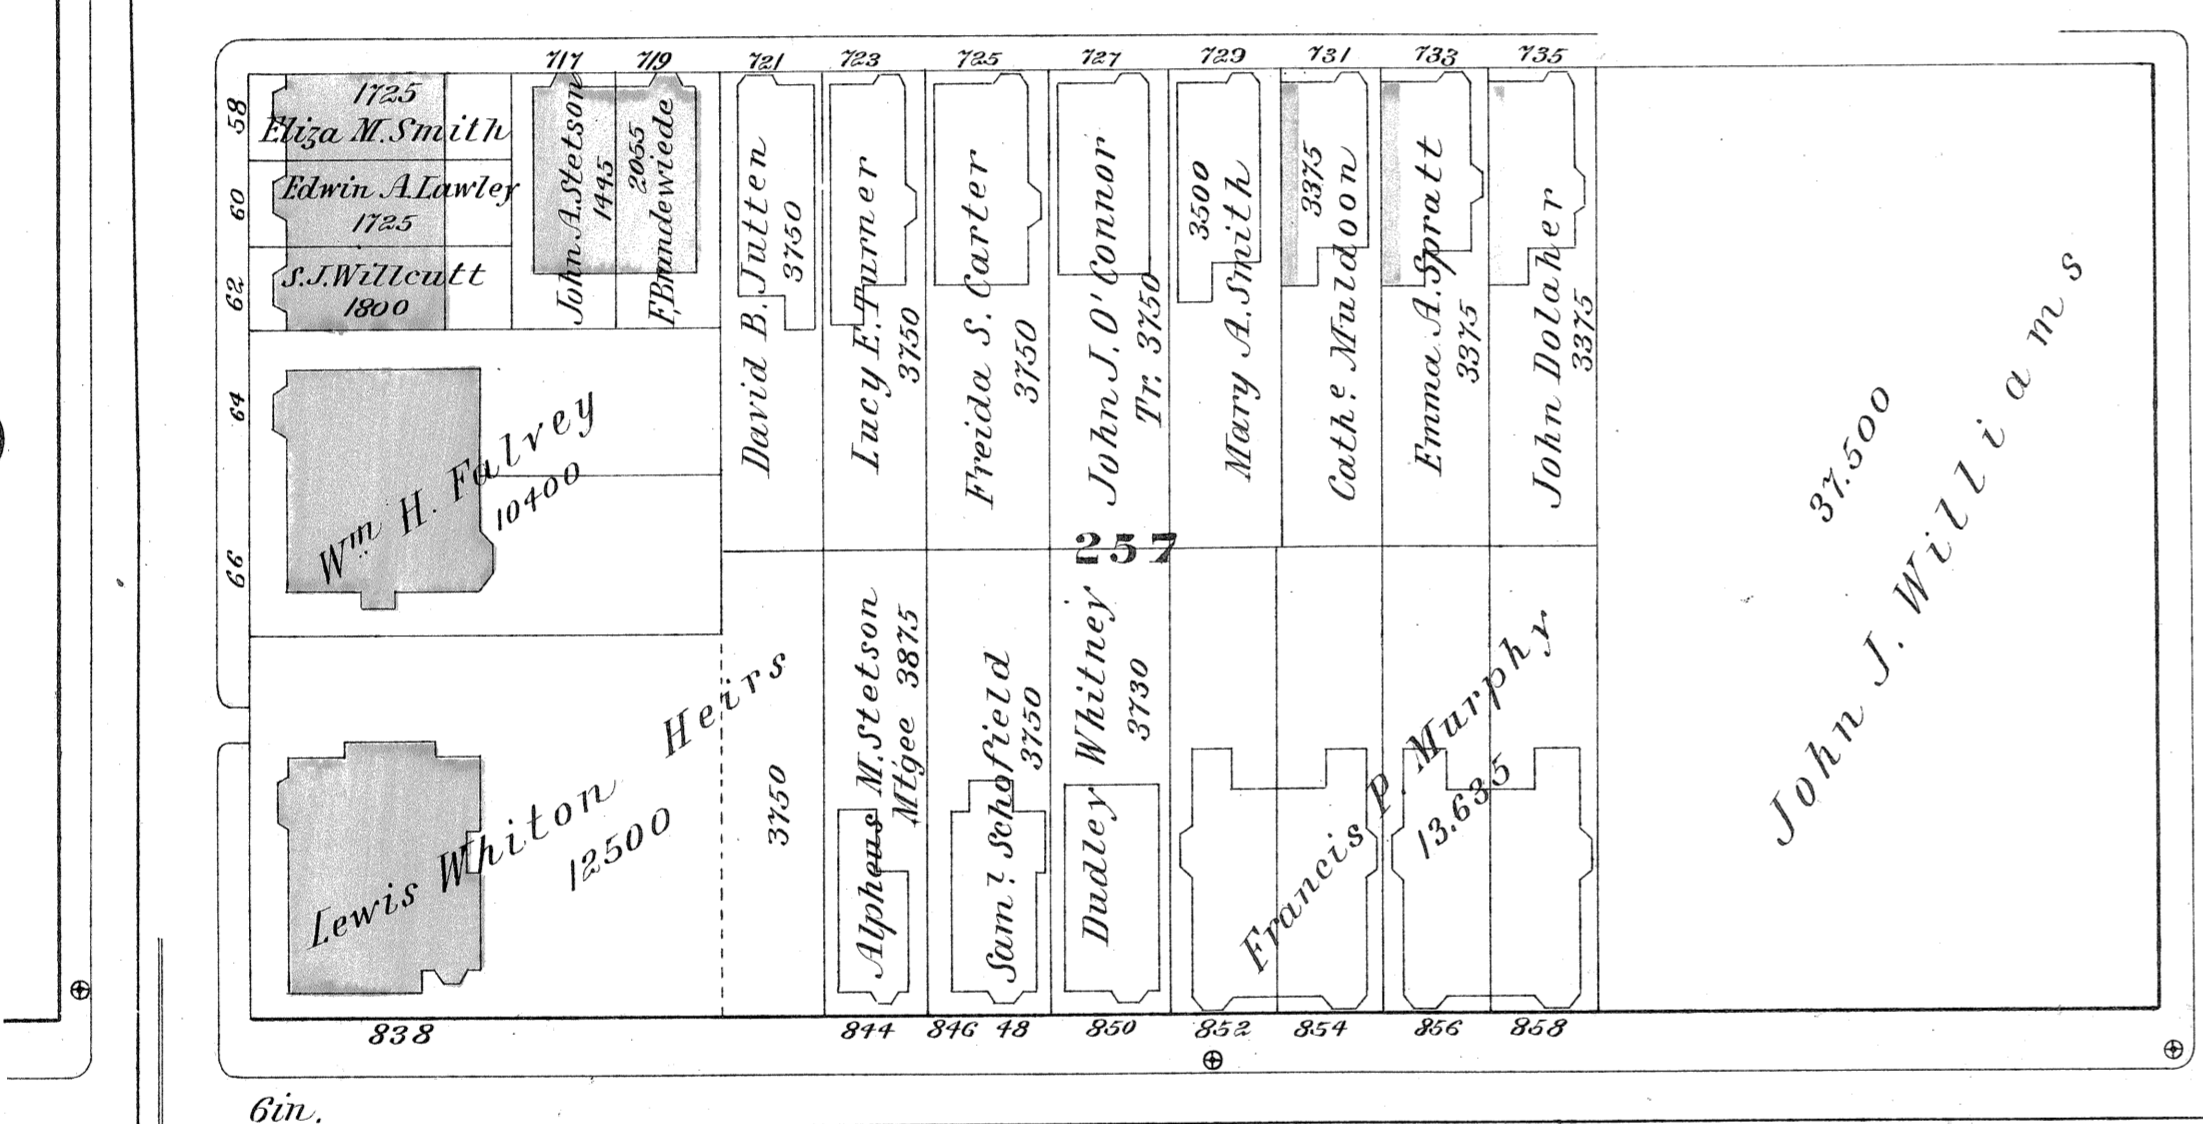 717
719
721
723
725
727
729
731
733
735
58
1725
Eliza M. Smith
60
Edwin A. Lawley
1725
62
S.J. Willcutt
1800
John A. Stetson
1445
2055
F. Brandewiede
David B. Jutten
3750
Lucy E. Turner
3750
Freida S. Carter
3750
John J. O'Connor
Tr. 3750
3500
Mary A. Smith
3375
Cathe. Muldoon
Emma A. Spratt
3375
John Dolaher
3375
37.500
John J. Williams
64
66
Wm H. Falvey
10400
257
Lewis Whiton Heirs
12500
3750
Alpheus M. Stetson
Mt'gee 3875
Saml. Schofield
3750
Dudley Whitney
3730
Francis P. Murphy
13.635
838
844
846 48
850
852
854
856
858
6in.